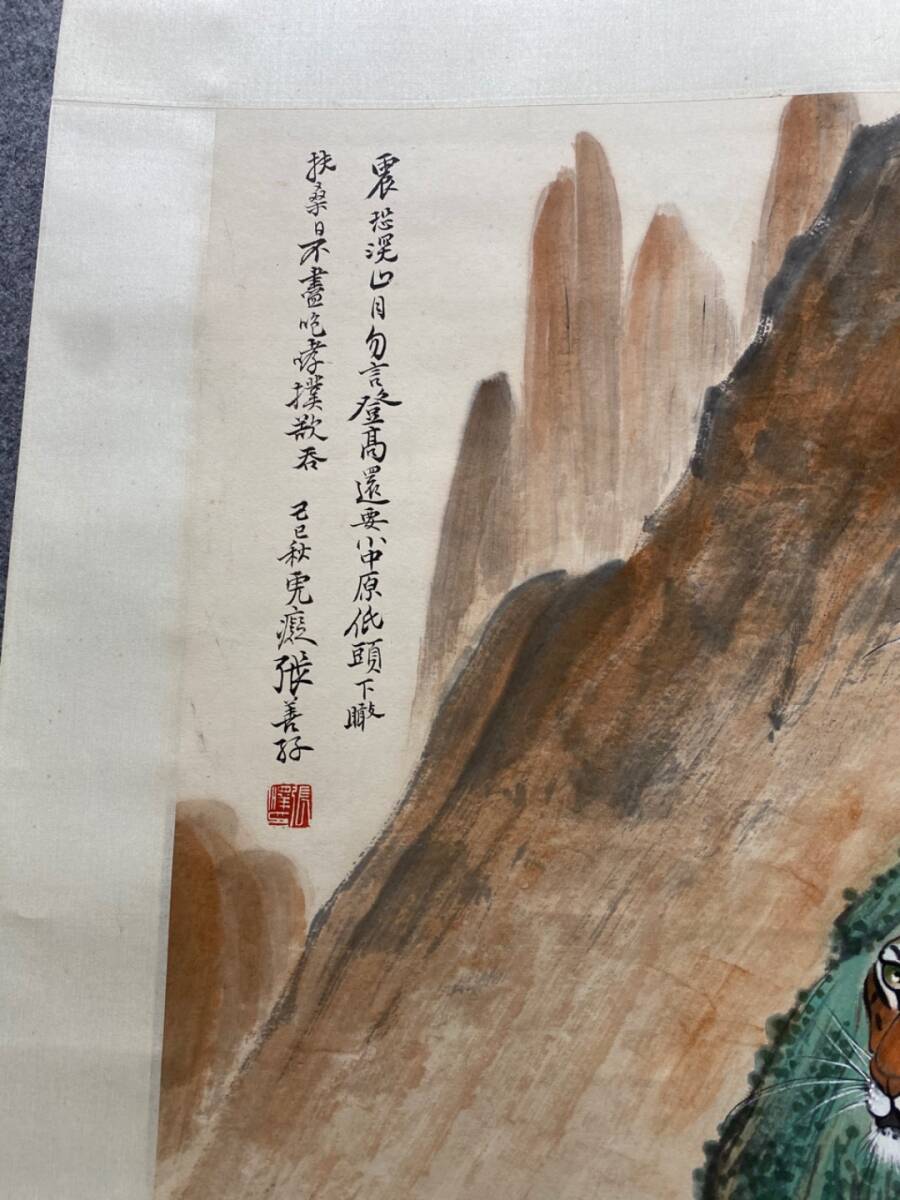 震恐溪山月勿言登高還要小中原低頭下瞰
扶桑日不盡咆哮撲欲吞 己巳秋虎癡張善孖
張澤印